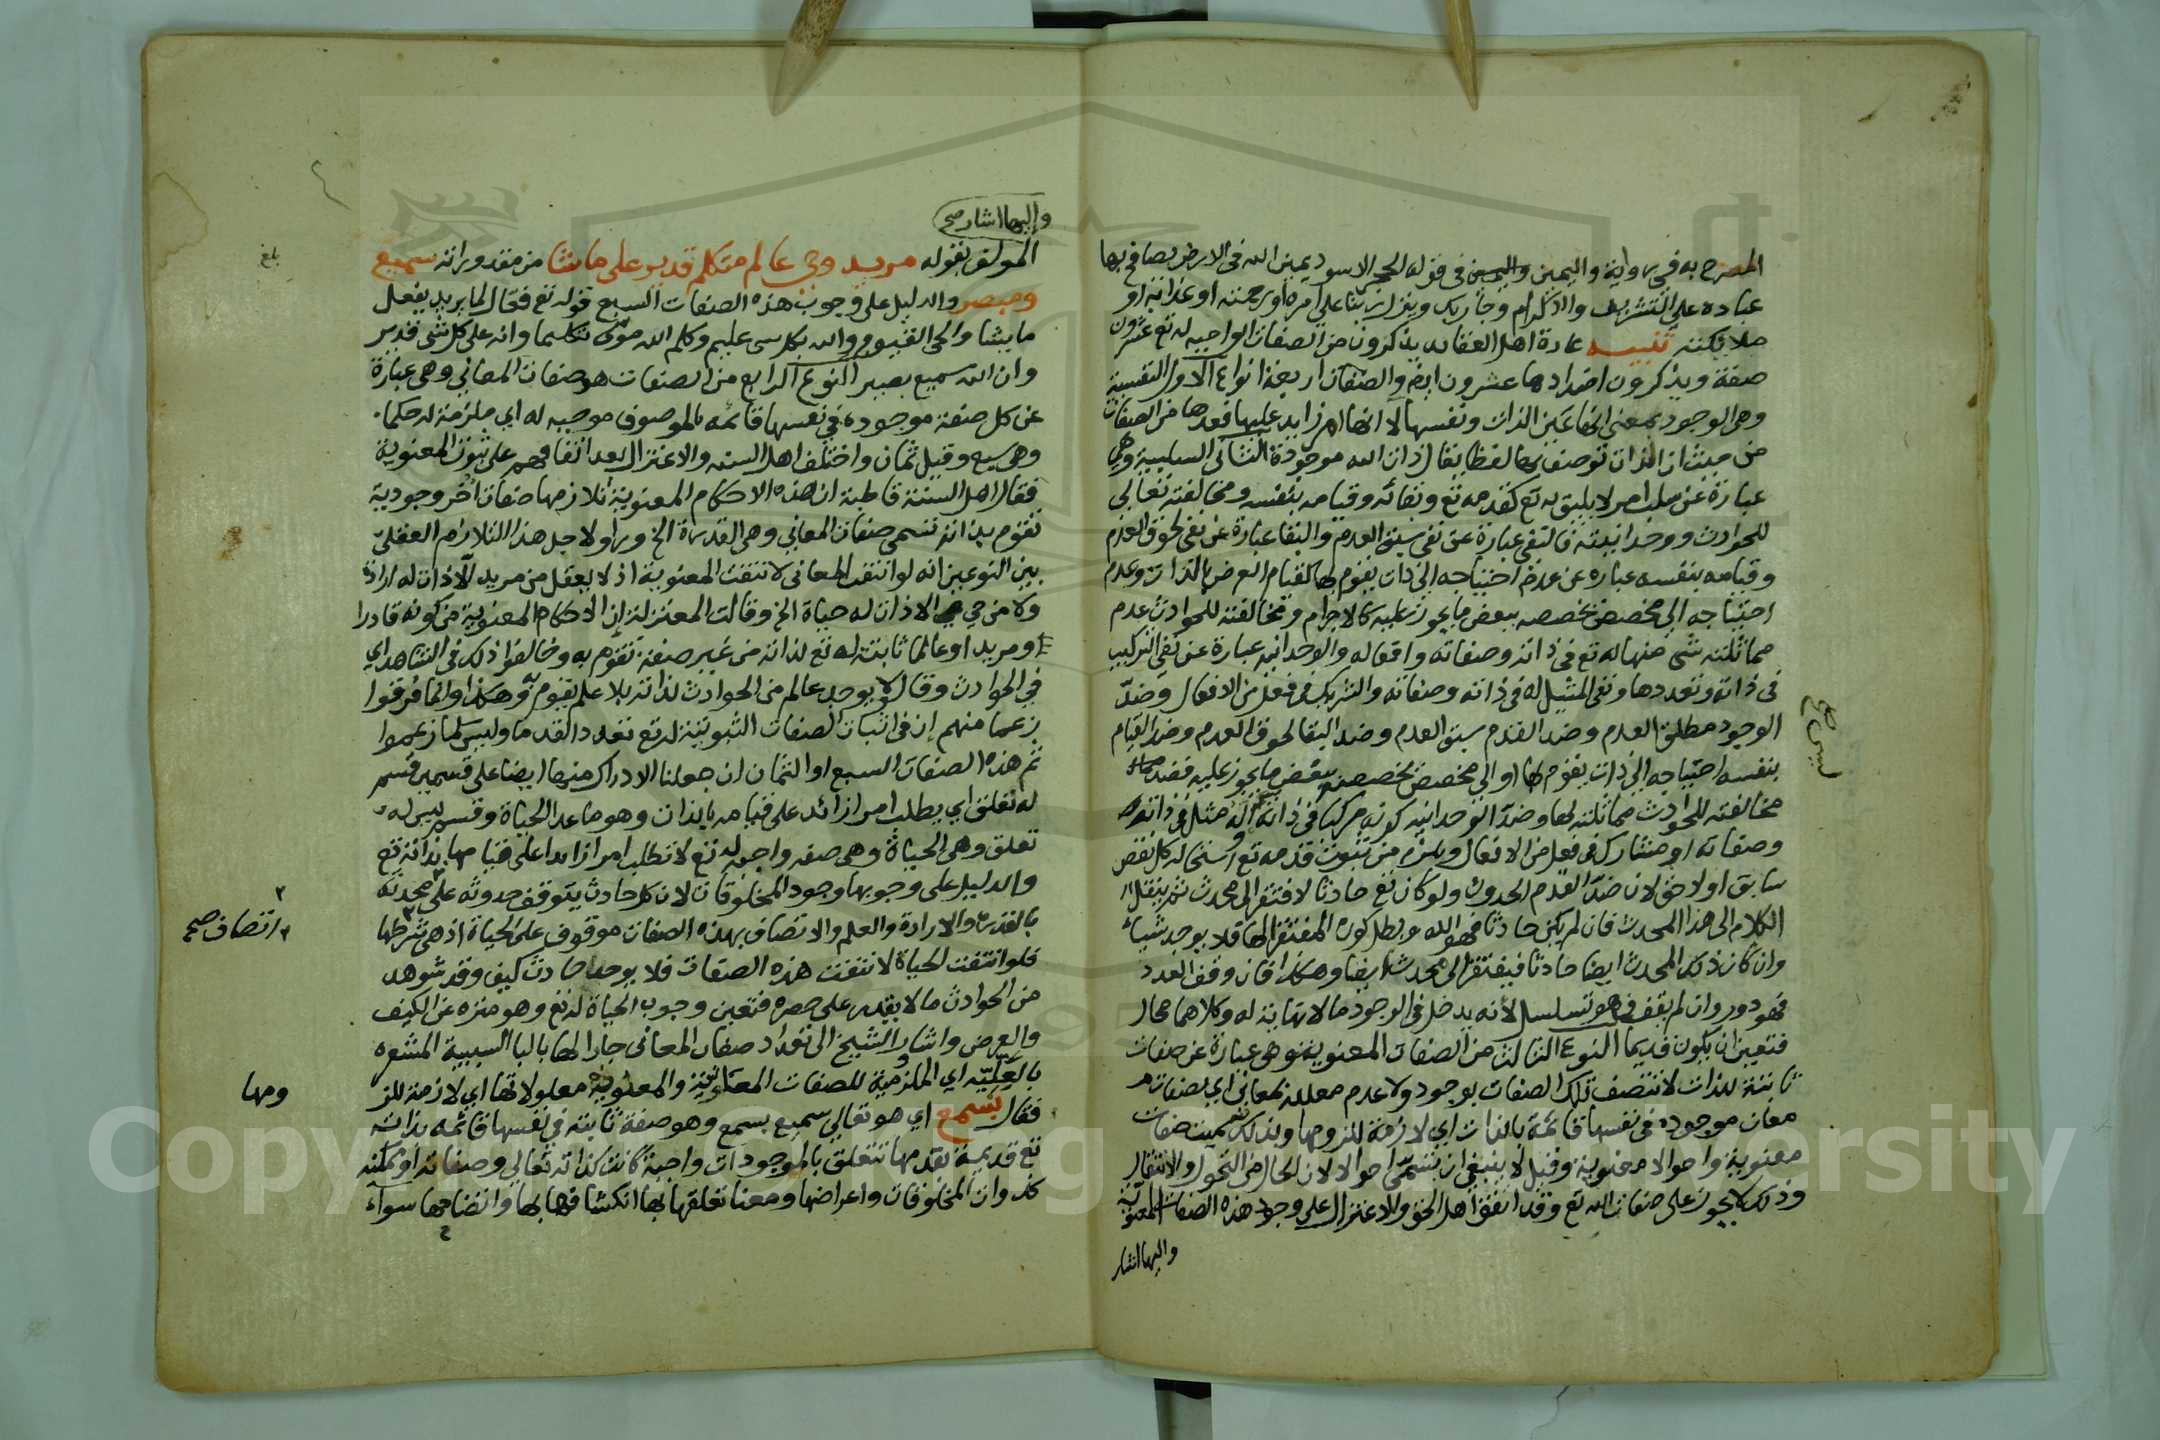 المصرح به في رواية واليمين واليمين في قوله الحجر الاسود يمين الله في الارض يصافح بها
عباده على التشريف والاكرام وجا ربك وينزل ربنا على امره او رحمته او عذابه او
ملايكته تنبيه عادة اهل العقايد يذكرون من الصفات الواجبه له تع عشرون
صفة ويذكرون اضدادها عشرون ايض والصفات اربعة انواع الاول النفسية
وهي الوجود بمعنى انها عين الذات ونفسها لا انها امر زايد عليها فعدها من الصفات
من حيث ان الذات توصف بها لفظا يقال ذات الله موجودة الثاني السلبية وهي
عبارة عن سلب امر لا يليق به تع كقدمه تع وبقائه وقيامه بنفسه ومخالفته تعالى
للحوادث ووحدانيته فالنفي عبارة عن نفي سبق العدم والبقا عبارة عن نفي لحوق العدم
وقيامه بنفسه عباره عن عدم احتياجه الى ذات يقوم بها كقيام العرض بالذات وعدم
احتياجه الى مخصص يخصصه ببعض ما يجوز عليه كالاجرام ومخالفته للحوادث عدم
مماثلته شي منها له تع في ذاته وصفاته وافعاله والوحدانيه عبارة عن نفي التركيب
في ذاته وتعددها ونفي المثيل له في ذاته وصفاته والشريك في فعل من الافعال وضدّ
الوجود مطلق العدم وضد القدم سبق العدم وضد البقا لحوق العدم وضد القيام
بنفسه احتياجه الى ذات يقوم بها او الى مخصص يخصصه ببعض ما يجوز عليه فضد
مخالفته للحوادث مماثلته لها وضدّ الوحدانيه كونه مركبا في ذاته اوله مثل في ذاته
وصفاته او مشارك في فعل من الافعال ويلزم من ثبوت قدمه تع استحاله كل نقص
سابق اولا حق لان ضدّ القدم الحدوث ولو كان تع حادثا لافتقر الى محدث ثم ينقل
الكلام الى هذا المحدث فان لم يكن حادثا فهو الله وبطل كون المفتقر الها فلا يوجد شياء
وان كان ذلك المحدث ايضا حادثا فيفتقر الى محدث ايضا وهكذا فان وقف العدد
فهو دور وان لم يقف فهو تسلسل لأنه يدخل في الوجود ما لا نهاية له وكلاهما محال
فتعين ان يكون قديما النوع الثالث من الصفات المعنوية وهي عبارة عن صفات
ثابتة للذات لا تتصف تلك الصفات بوجود ولا عدم معللة بمعاني اي بصفات
معان موجوده في نفسها قائمة بالذات اي لازمة للزومها ولذلك سميت صفات
معنوية واحوالا معنوية وقيل لا ينبغي ان تسمّى احوالا لان الحال من التحول والانتقال
وذلك لا يجوز على صفات الله تع وقد اتفق اهل الحق والاعتزال على وجود هذه الصفات المعنوية
واليها اشار
سبع
واليها اشار صح
المولف بقوله مريد وحي عالم متكلم قدير على ما شا من مقدوراته سميع
ومبصر والدليل على وجوب هذه الصفات السبع قوله تع فعّال لما يريد يفعل
ما يشا والحي القيوم والله بكل شي عليم وكلم الله موسى تكليما وانه على كل شي قدير
وان الله سميع بصير النوع الرابع من الصفات هو صفات المعاني وهي عبارة
عن كل صفة موجوده في نفسها قائمه بالموصوف موجبه له اي ملزمة له حكما
وهي سبع وقيل ثمان واختلف اهل السنه والاعتزال بعد اتفاقهم على ثبوت المعنوية
فقال اهل السنة قاطبة ان هذه الاحكام المعنوية تلازمها صفات أخر وجودية
تقوم بذاته تسمى صفات المعاني وهي القدرة الخ وراولا جل هذا التلازم العقليّ
بين النوعين انه لو انتفت المعاني لانتفت المعنوية اذ لا يعقل من مريد الا ذات له ارادة
ولا من حي الا ذات له حياة الخ وقالت المعتزلة ان الاحكام المعنوية من كونه قادرا
او مريد او عالما ثابتة له تع لذاته من غير صفة تقوم به وخالفوا ذلك في الشاهد اي
في الحوادث وقالوا لا يوجد عالم من الحوادث لذاته بلا علم يقوم به وهكذا وانما فرقوا
بزعما منهم ان في اثبات الصفات الثبوتية له تع تعدد القدما وليس كما زعموا
ثم هذه الصفات السبع او الثمان ان جعلنا الادراك منها ايضا على قسمين قسم
له تعلق اي يطلب امرا زائد على قيامه بالذات وهو ما عدا الحياة وقسم ليس له
تعلق وهي الحياة وهي صفه واجبه له تع لا تطلب امرا زايدا على قيامها بذاته تع
والدليل على وجوبها وجود المخلوقات لان كل حادث يتوقف حدوثه على محدثه
بالقدرة والارادة والعلم والاتصاف بهذه الصفات موقوف على الحياة اذ هي شرطها
فلو انتفت الحياة لانتفت هذه الصفات فلا يوجد حادث كيف وقد شوهد
من الحوادث ما لا يقدر على حصره فتعين وجوب الحياة له تع وهو منزه عن الكيف
والعرض واشار الشيخ الى تعداد صفات المعاني جارا لها بالبا السببية المشعره
بالعِلّيّه اي الملزمية للصفات المعنوية والمعنوية معلولاتها اي لازمة للز
فقال بسمع اي هو تعالى سميع بسمع وهو صفة ثابته في نفسها قائمه بذاته
تع قديمة بقدمها تتعلق بالموجودات واجبة كانت كذاته تعالى وصفاته او ممكنه
كذوات المخلوقات واعراضها ومعنا تعلقها بها انكشافها بها واتضاحها سواء
بلغ
اتصاف صح
ومها
Copyright © King Saud University